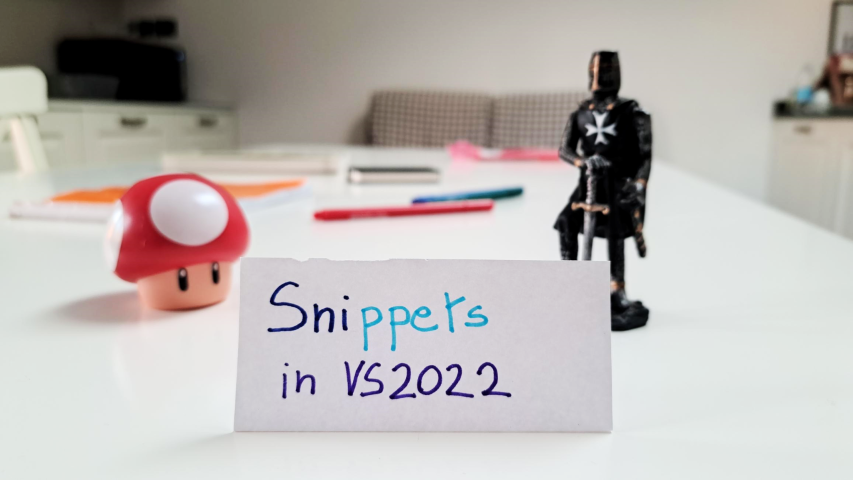 Snippets
in VS2022